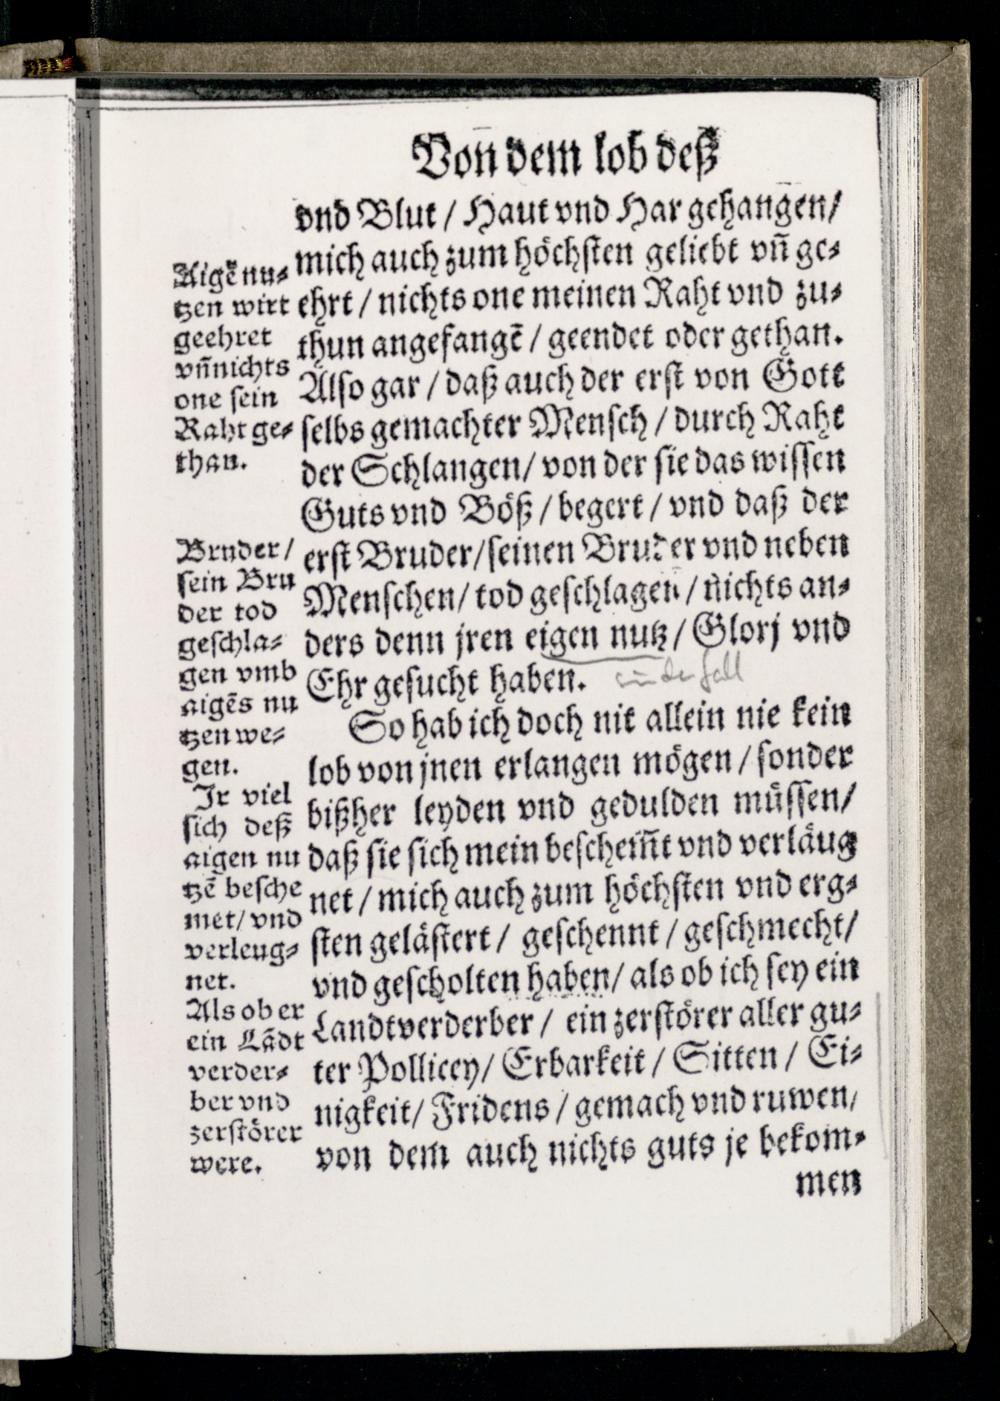 Von dem lob deß
vnd Blut / Haut vnd Har gehangen /
mich auch zum höchsten geliebt vñ ge-
ehrt / nichts one meinen Raht vnd zu-
thun angefangẽ / geendet oder gethan.
Also gar / daß auch der erst von Gott
selbs gemachter Mensch / durch Raht
der Schlangen / von der sie das wissen
Guts vnd Böß / begert / vnd daß der
erst Bruder / seinen Bruder vnd neben
Menschen / tod geschlagen / nichts an-
ders denn jren eigen nutz / Glorj vnd
Ehr gesucht haben.
So hab ich doch nit allein nie kein
lob von jnen erlangen mögen / sonder
bißher leyden vnd gedulden müssen /
daß sie sich mein beschem̃t vnd verläug
net / mich auch zum höchsten vnd erg-
sten gelästert / geschennt / geschmecht /
vnd gescholten haben / als ob ich sey ein
Landtverderber / ein zerstörer aller gu-
ter Pollicey / Erbarkeit / Sitten / Ei-
nigkeit / Fridens / gemach vnd ruwen /
von dem auch nichts guts je bekom-
men
Aigẽ nu-
tzen wirt
geehret
vñ nichts
one sein
Raht ge-
than.
Bruder /
sein Bru
der tod
geschla-
gen vmb
aigẽs nu
tzen we-
gen.
Ir viel
sich deß
aigen nu
tzẽ besche
met / vnd
verleug-
net.
Als ob er
ein Lãdt
verder-
ber vnd
zerstörer
were.